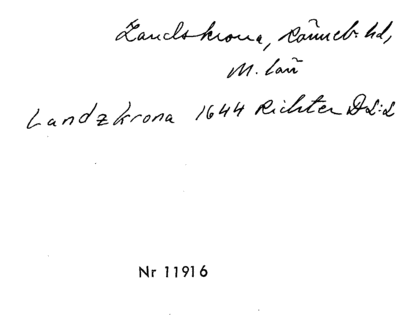 Landskrona, Rönneb. hd,
M. län
Landzkrona 1644 Richter DL:2
Nr 11916